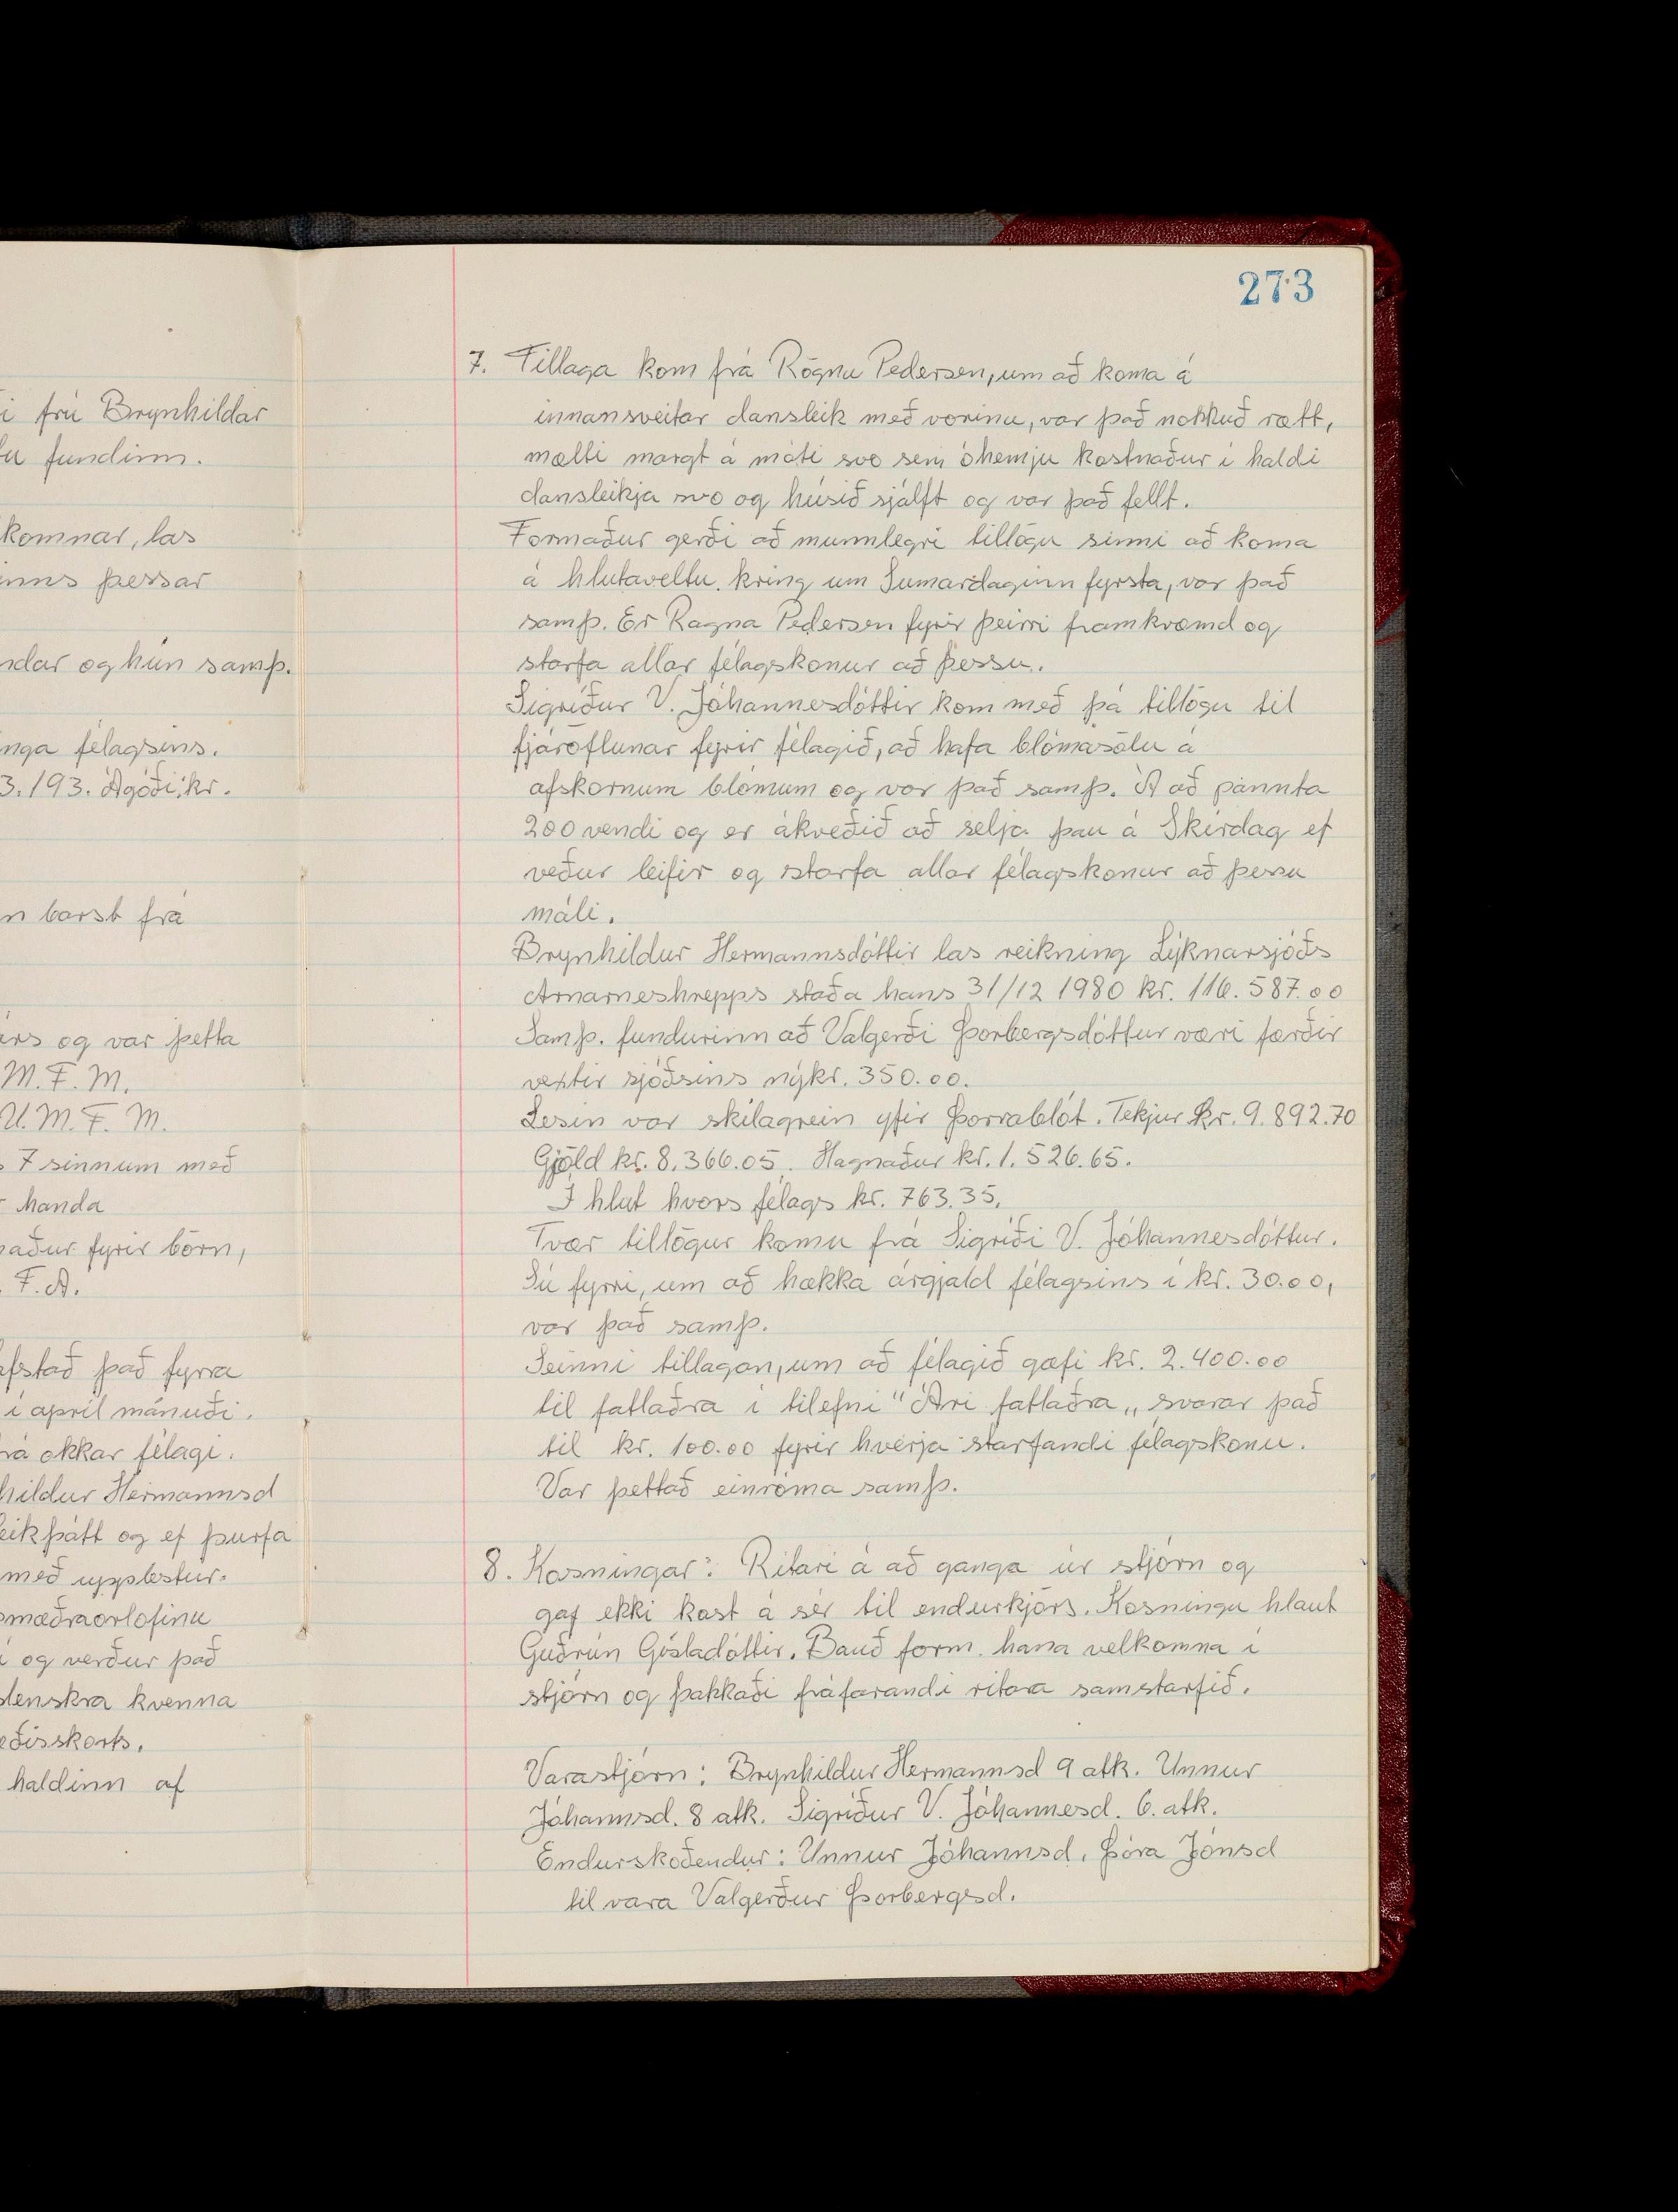 i frú Brynhildar
fundinn.
komnar, las
þessar
og hún samþ.
félagsins.
3.193. Ágóði: kr.
barst frá
og var þetta
M. F. M.
U. M. F. M.
7 sinnum með
Manda
fyrir börn,
F. A.
það fyrra
í apríl mánuði.
okkar félagi.
Hermannsd
og ef þurfa
með upplestur.
og verður það
kvenna
haldinn af
273
7. Tillaga kom frá Rögnu Pedersen, um að koma á
innansveitar dansleik með vorinu, var það nokkuð rætt,
mælti margt á móti svo sem óhemju kostnaður í haldi
dansleikja svo og húsið sjálft og var það fellt.
Formaður gerði að munnlegri tillögu sinni að koma
á hlutaveltu kring um Sumardaginn fyrsta, var það
samþ. Er Ragna Pedersen fyrir þeirri framkvæmd og
starfa allar félagskonur að þessu.
Sigríður V. Jóhannesdóttir kom með þá tillögu til
fjáröflunar fyrir félagið, að hafa blómasölu á
afskornum blómum og var það samþ. Á að pannta
200 vendi og er ákveðið að selja þau á Skírdag ef
veður leifir og starfa allar félagskonur að þessu
máli.
Brynhildur Hermannsdóttir las reikning Lýknarsjóðs
Arnarneshrepps staða hans 31/12 1980 kr. 116.587.00
Samþ. fundurinn að Valgerði Þorbergsdóttur væri færðir
vextir sjóðsins nýkr. 350.00.
Lesin var skilagrein yfir Þorrablót. Tekjur kr. 9.892.70
Gjöld kr. 8.366.05. Hagnaður kr. 1.526.65.
Í hlut hvors félags kr. 763.35.
Tvær tillögur komu frá Sigríði V. Jóhannesdóttur.
Sú fyrri, um að hækka árgjald félagsins í kr. 30.00,
var það samþ.
Seinni tillagan, um að félagið gæfi kr. 2.400.00
til fatlaðra í tilefni "Ári fatlaðra„ svarar það
til kr. 100.00 fyrir hverja starfandi félagskonu.
Var þettað einróma samþ.
8. Kosningar: Ritari á að ganga úr stjórn og
gaf ekki kost á sér til endurkjörs. Kosningu hlaut
Guðrún Gísladóttir. Bauð form. hana velkomna í
stjórn og þakkaði fráfarandi ritara samstarfið.
Varastjórn: Brynhildur Hermannsd 9 atk. Unnur
Jóhannsd. 8 atk. Sigríður V. Jóhannesd. 6. atk.
Endurskoðendur: Unnur Jóhannsd, Þóra Jónsd
til vara Valgerður Þorbergsd.